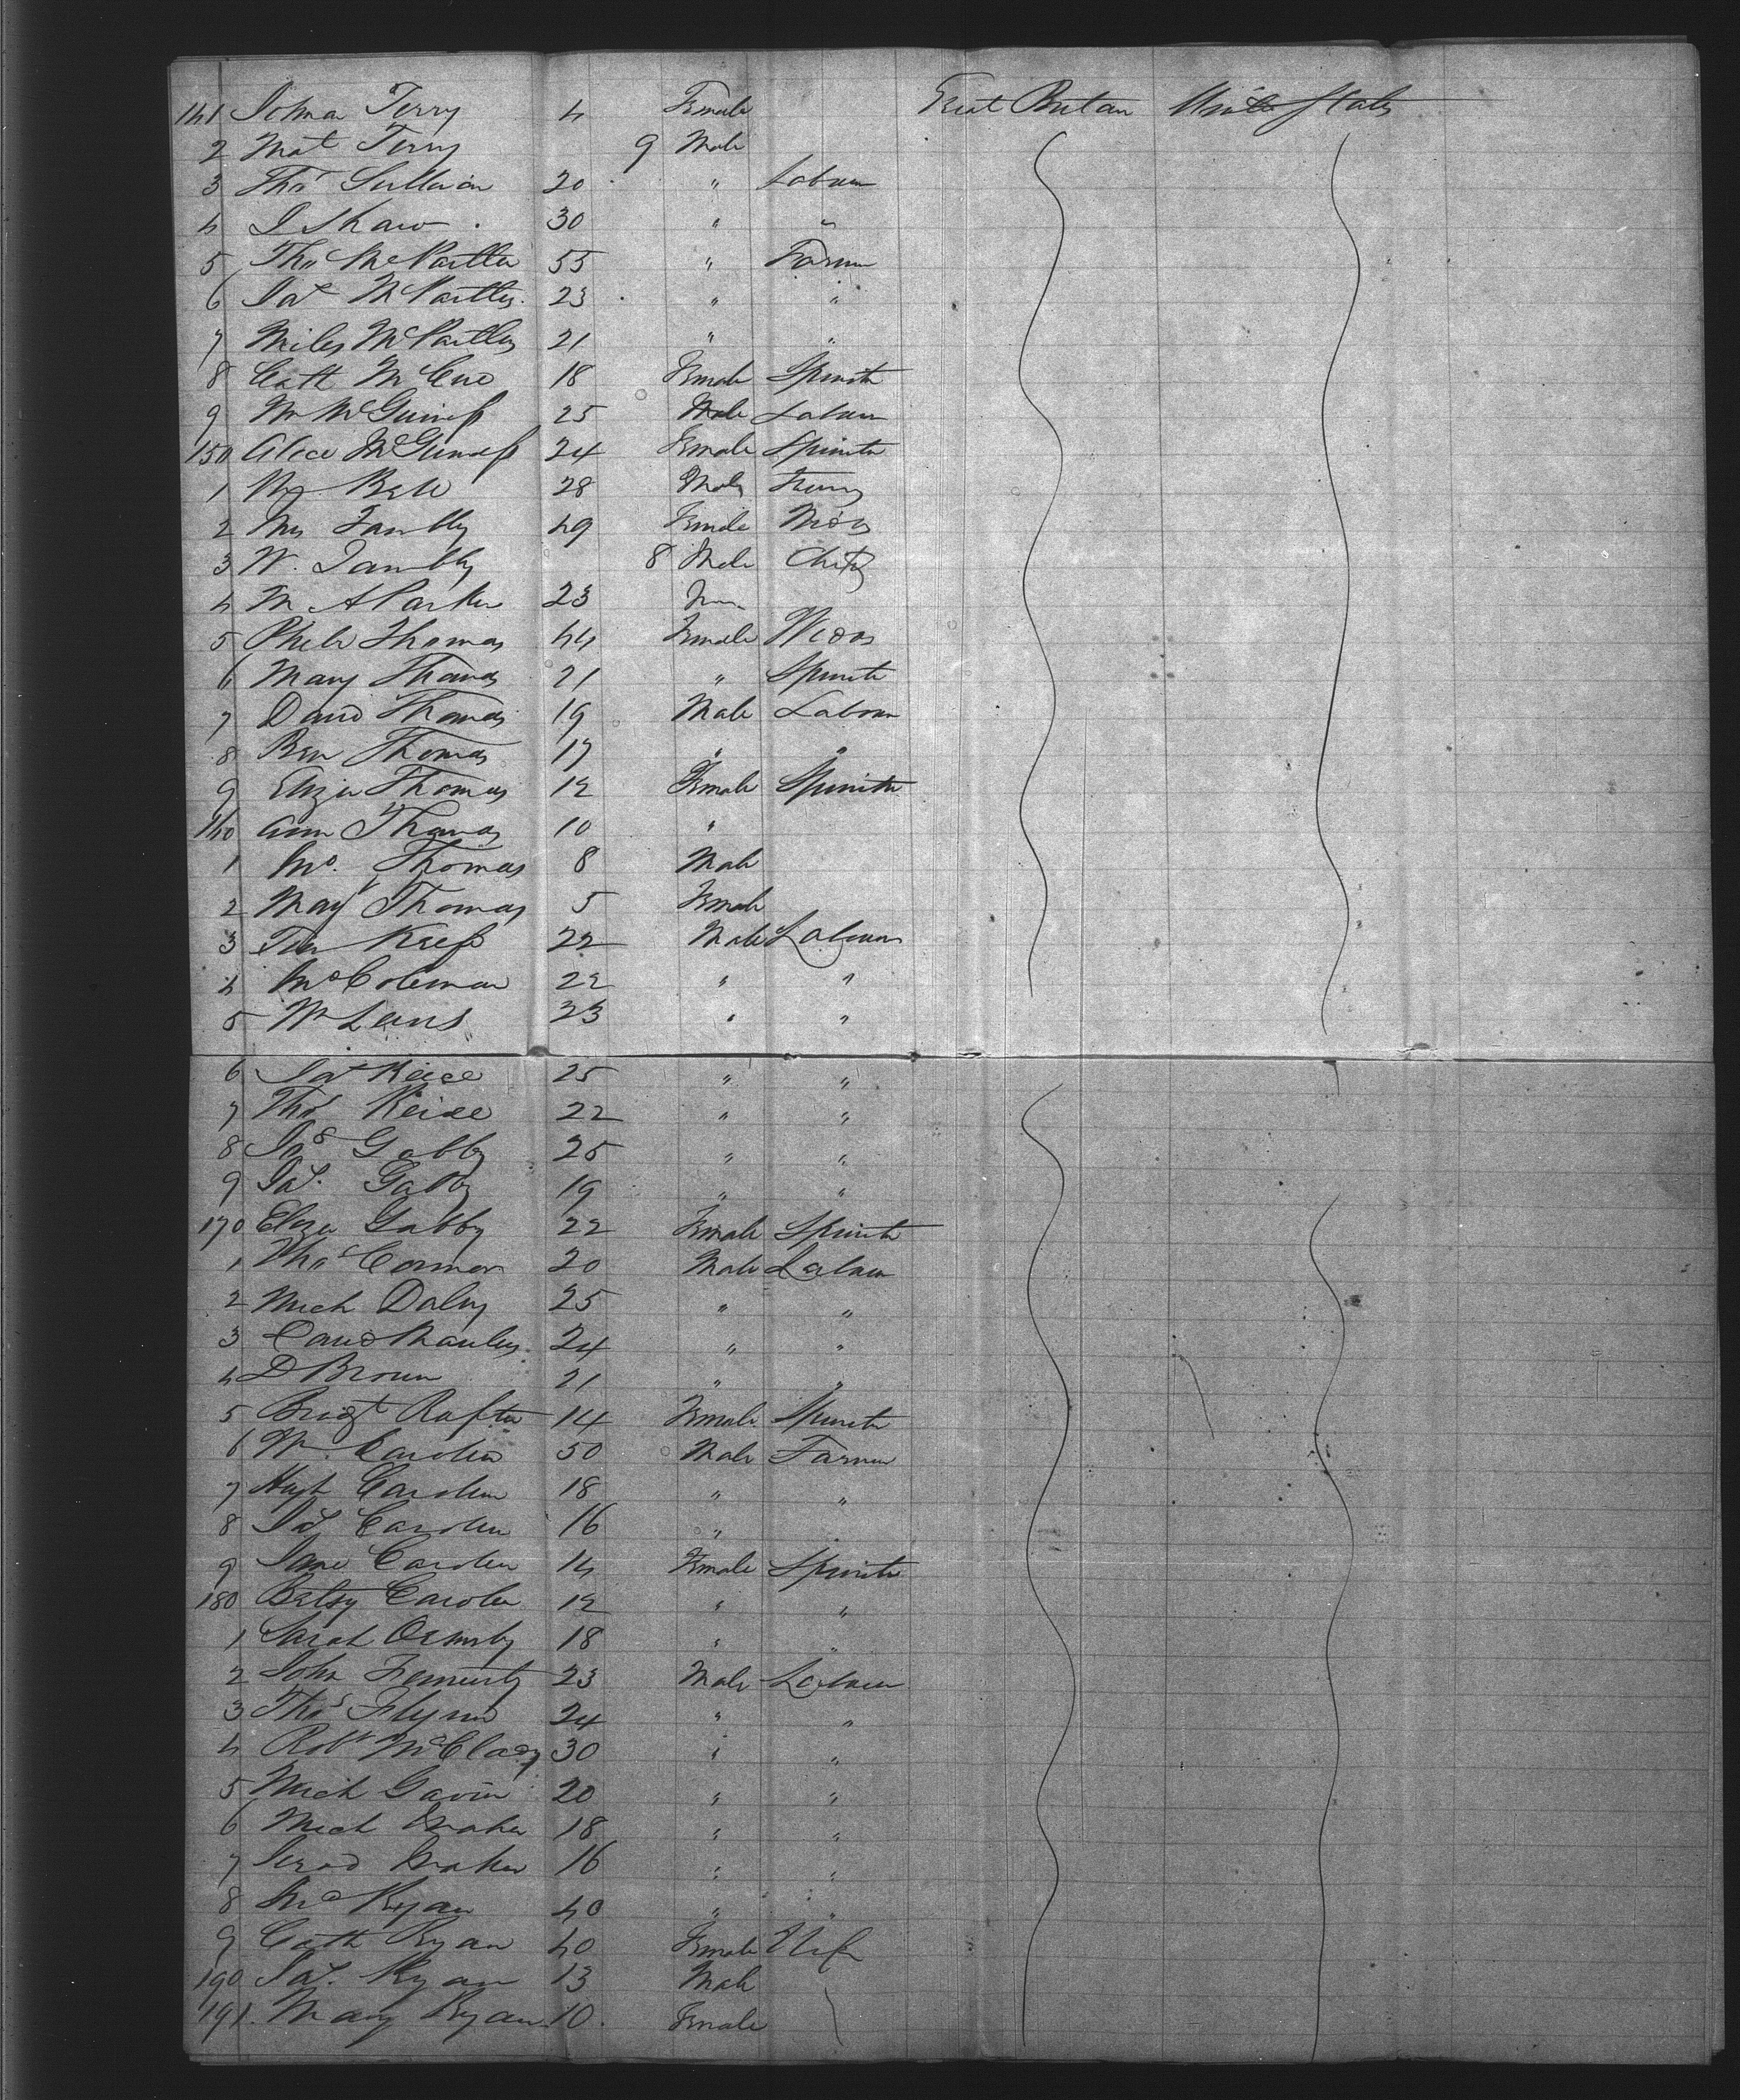 141 Johna Terry 4 Female Great Britan United States
2 Mat Terry 9 Male
3 Thos Sullivan 20 " Labour
4 J Shaw 30 " "
5 Thos McPartlen 55 " Farmer
6 Jas McPartley 23 " "
7 Miles McPartley 21 " "
8 Cath McCue 18 Female Spinster
9 Wm McGuiness 25 Male Labour
150 Alice McGuiness 24 Female Spinster
1 Bell 28 Male
2 Mrs 49 Female Widow
3 W. 8 Male Child
4 M A Parker 23
5 Phebe Thomas 44 Female Widow
6 Mary Thomas 21 " Spinster
7 David Thomas 19 Male Labour
8 Ben Thomas 17 " "
9 Eliza Thomas 12 Female Spinster
160 Ann Thomas 10 "
1 Jno. Thomas 8 Male
2 May Thomas 5 Female
3 Tim Keefe 22 Male Labour
4 Jno Coleman 22 " "
5 Wm 23 " "
6 Jas 25 " "
7 Thos 22 " "
8 Jas Gabby 25 " "
9 Jas. Gabby 19 " "
170 Eliza Gabby 22 Female Spinster
1 Thos Connor 20 Male Labour
2 Mich Daley 25 " "
3 David Manley 24 " "
4 D Brown 21 " "
5 Bridgt Rafter 14 Female Spinster
6 Wm. Carolen 50 Male Farmer
7 Hugh Carolen 18 " "
8 Jas Carolen 16 "
9 Jane Carolen 14 Female Spinster
180 Betsy Carolen 12 " "
1 Sarah Ormsby 18 " "
2 John 23 Male Labour
3 Thos Flynn 24 " "
4 Robt 30 " "
5 Mich Gavin 20 " "
6 Mich Maher 18 " "
7 Maher 16 " "
8 Jno Ryan 40 " "
9 Cath Ryan 40 Female Wife
190 Jas. Ryan 13 Male
191. Mary Ryan 10. Female